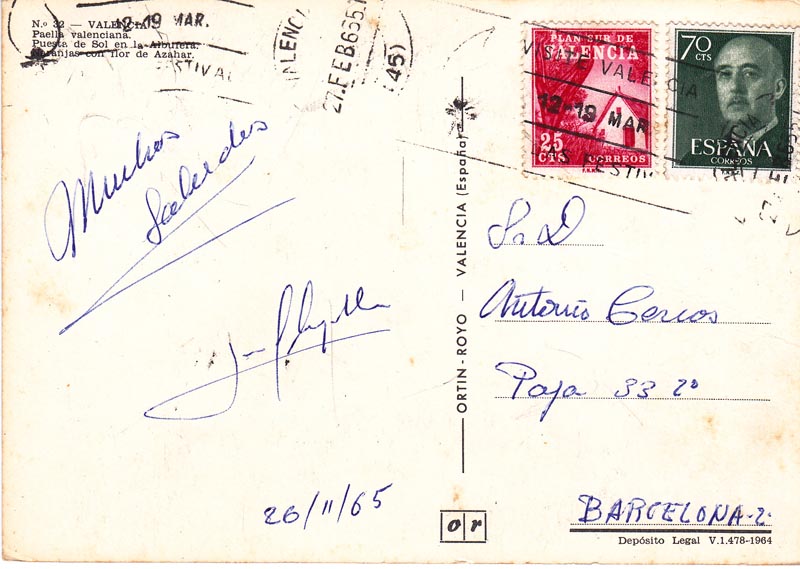 N.º 32 — VALENCIA
Paella valenciana.
Puesta de Sol en la Albufera.
Naranjas con flor de Azahar.
12-19 MAR.
VALENCIA
27.FEB65
(45)
Muchos
Saludos
26/II/65
ORTIN-ROYO — VALENCIA (España)
PLAN SUR DE
VALENCIA
25
CTS
CORREOS
70
CTS
ESPAÑA
CORREOS
VISITE VALENCIA
12-19 MAR.
S. D
Antonio
Paja 33 2º
BARCELONA-2.
or
Depósito Legal V.1.478-1964